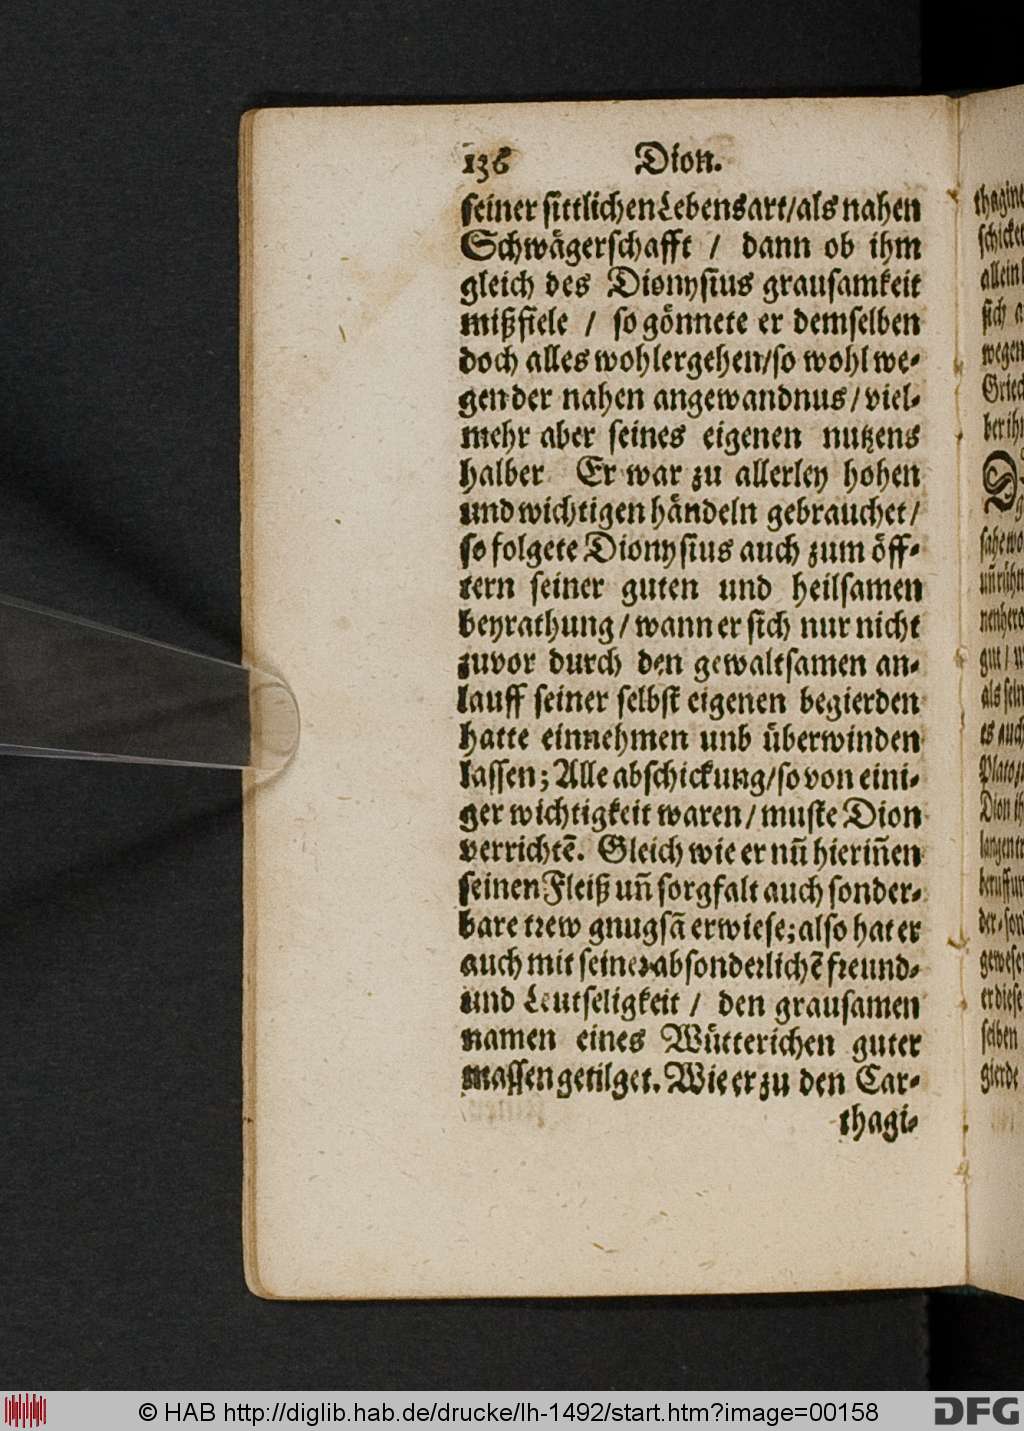 136 Dion.
seiner sittlichen Lebensart/als nahen
Schwägerschafft / dann ob ihm
gleich des Dionysius grausamkeit
mißfiele / so gönnete er demselben
doch alles wohlergehen/so wohl we-
gen der nahen angewandnus/viel-
mehr aber seines eigenen nutzens
halber Er war zu allerley hohen
und wichtigen händeln gebrauchet/
so folgete Dionysius auch zum öff-
tern seiner guten und heilsamen
beyrathung/wann er sich nur nicht
zuvor durch den gewaltsamen an-
lauff seiner selbst eigenen begierden
hatte einnehmen unb überwinden
lassen; Alle abschickung/so von eini-
ger wichtigkeit waren/muste Dion
verrichtẽ. Gleich wie er nũ hieriñen
seinen Fleiß uñ sorgfalt auch sonder-
bare trew gnugsã erwiese; also hat er
auch mit seiner absonderlichẽ freund-
und Leutseligkeit / den grausamen
namen eines Wütterichen guter
massen getilget. Wie er zu den Car-
thagi-
thagine
schicket
allein
sich a
wegen
Griec
ber ih
sahe wo
gut/w
als sein
es auch
Plato
Dion ih
der-son
gewese
er diese
selben
gierde
© HAB http://diglib.hab.de/drucke/lh-1492/start.htm?image=00158
DFG